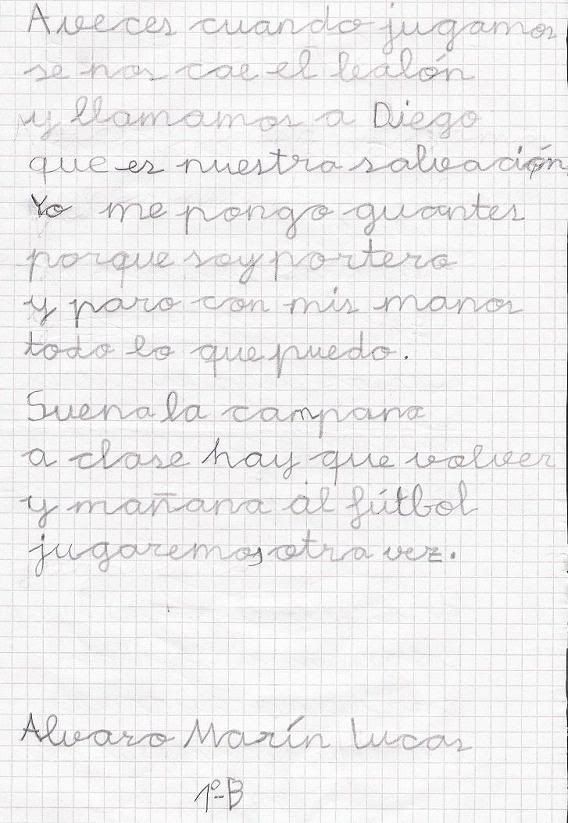 A veces cuando jugamos
se nos cae el balón
y llamamos a Diego
que es nuestra salvación
Yo me pongo guantes
porque soy portero
y paro con mis manos
todo lo que puedo.
Suena la campana
a clase hay que volver
y mañana al fútbol
jugaremos otra vez.
Alvaro Marín Lucas
1º-B